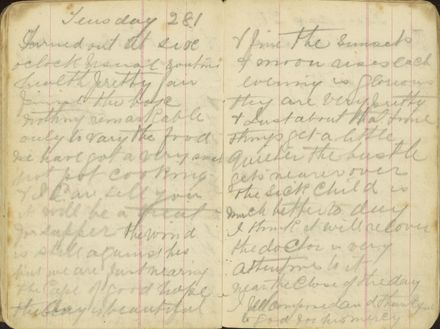 Tuesday 281
Turned out at six
oclock usual routine
health pretty fair
the hose
nothing remarkable
only to vary the food
we have got a very
pot cooking
& I can tell you
it will be a treat
for supper the wind
is still against us
but we are just nearing
the Cape of good hope
the day is beautiful
& fine the sunsets
& moon rises each
evening is glorious
they are very pretty
& Just about that time
things get a little
quieter the bustle
gets nearer over
the sick child is
much better to day
I think it will recover
the doctor is very
attentive to it
near the close of the day
I feel composed and thankful
to God for his mercy